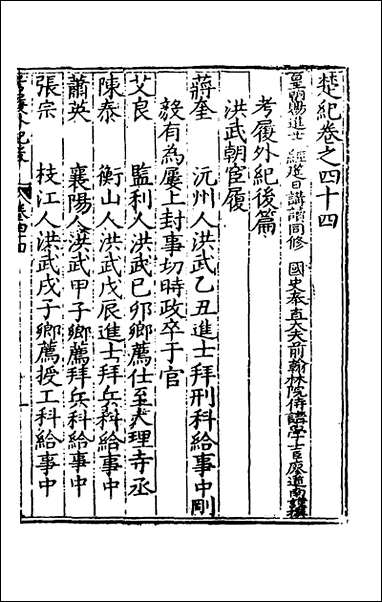 楚紀卷之四十四
皇明賜進士 經筵日講講同修 國史奉直大夫前翰林院侍講學士臣廖道南謹撰
考履外紀後篇
洪武朝宦履
蔣奎 沅州人洪武乙丑進士拜刑科給事中剛
毅有為屢上封事切時政卒于官
艾良 監利人洪武己卯鄉薦仕至大理寺丞
陳泰 衡山人洪武戊辰進士拜兵科給事中
蕭英 襄陽人洪武甲子鄉薦拜兵科給事中
張宗 枝江人洪武戊子鄉薦授工科給事中